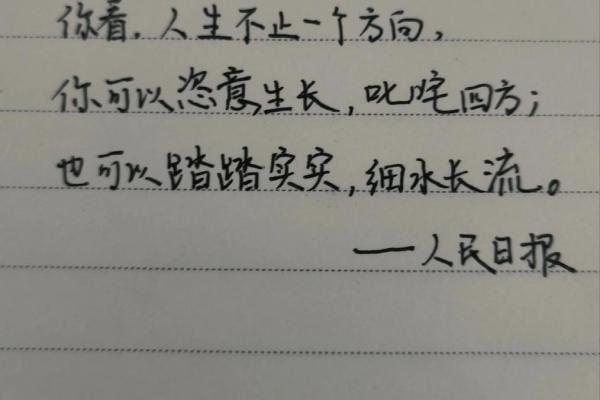 你看，人生不止一个方向，
你可以恣意生长，叱咤四方；
也可以踏踏实实，细水长流。
——人民日报